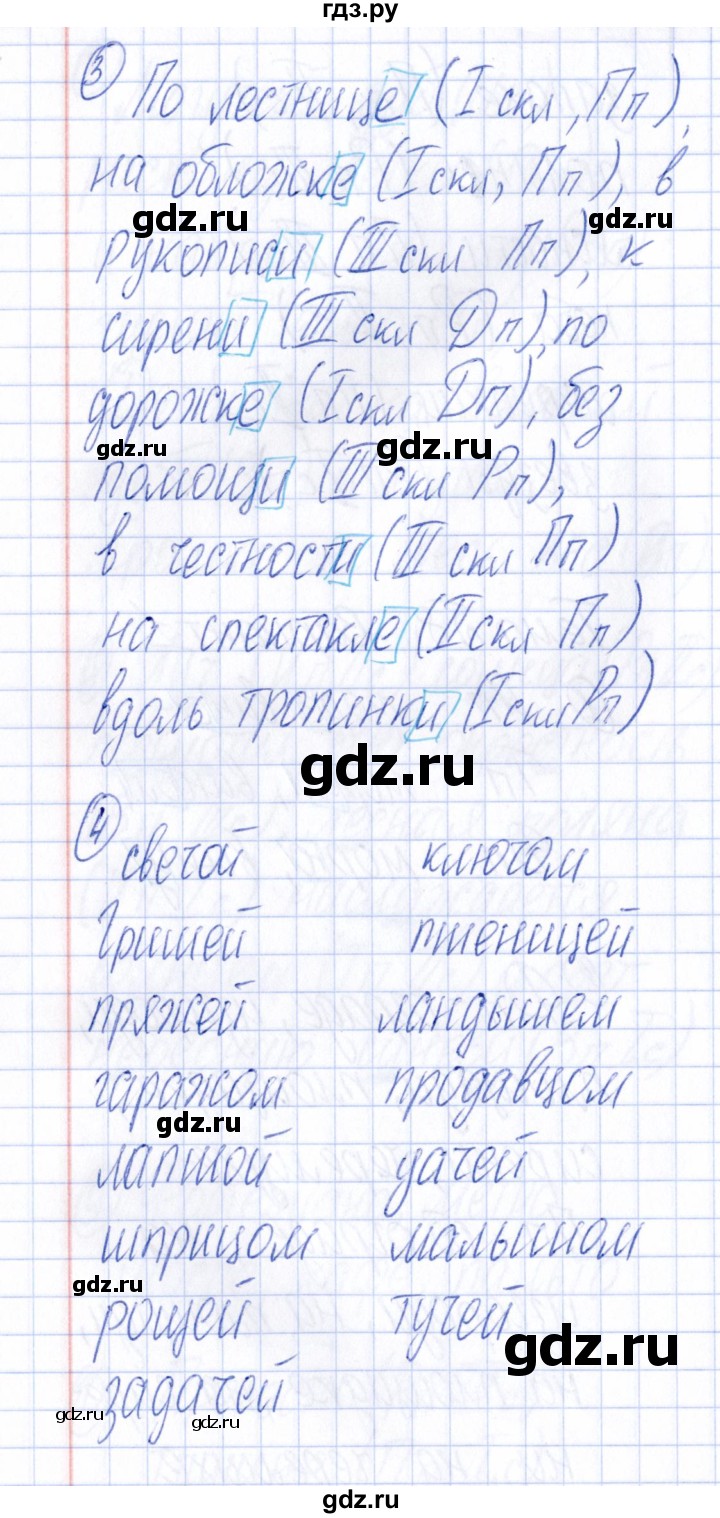 гдз.ру
3 По лестнице (I скл, Пп),
на обложке (I скл, Пп), в
gdz.ru gdz.ru
рукописи (III скл Пп), к
сирени (III скл Дп), по
дорожке (I скл Дп), без
gdz.ru gdz.ru
помощи (III скл Рп),
в честности (III скл Пп)
на спектакле (II скл Пп)
вдоль тропинки (I скл Рп)
gdz.ru
4 свечой ключом
Гришей пшеницей
пряжей ландышем
гаражом продавцом
gdz.ru
лапшой удачей
шприцом малышом
gdz.ru
рощей тучей
gdz.ru
задачей
gdz.ru gdz.ru
gdz.ru